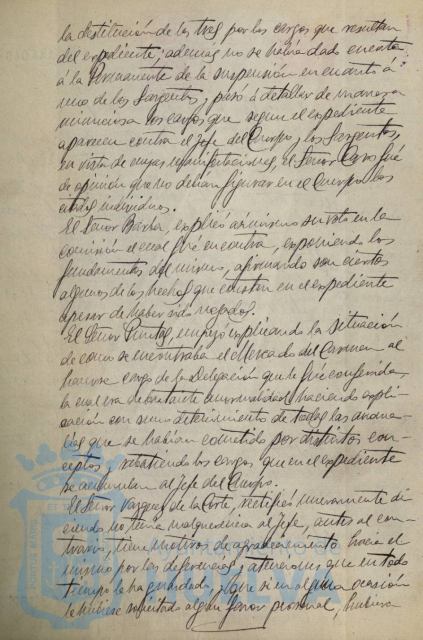 la destitución de los tres por los cargos que resultan
del expediente; además no se había dado cuenta
á la Permanente de la suspensión en cuanto á
uno de los Sargentos, y pasó á detallar de manera
minuciosa los cargos que según el expediente
aparecen contra el Jefe del Cuerpo y los Sargentos,
en vista de cuyas manifestaciones, el Señor fué
de opinión que no debían figurar en el Cuerpo los
citados individuos.
El Señor Barba, explicó asimismo su voto en la
comisión el cual fué en contra, exponiendo los
fundamentos del mismo, afirmando son ciertos
algunos de los hechos que constan en el expediente
apesar de haber sido negados.
El Señor empezó explicando la situación
de como se encontraba el Mercado del Carmen al
hacerse cargo de la Delegación que le fué conferida,
la cual era de bastante anormalidad, haciendo expli-
cación con sumo detenimiento de todas las anoma-
lías que se habían cometido por distintos con-
ceptos, y rebatiendo los cargos que en el expediente
se acumulan al Jefe del Cuerpo.
El Señor Vazquez de la Corte, rectificó nuevamente di-
ciendo no tenía malquerencia al Jefe, antes al con-
trario, tiene motivos de agradecimiento hacia el
mismo por las deferencias y atenciones que en todo
tiempo le ha guardado, y que si en alguna ocasión
le hubiese solicitado algún favor personal, hubiera